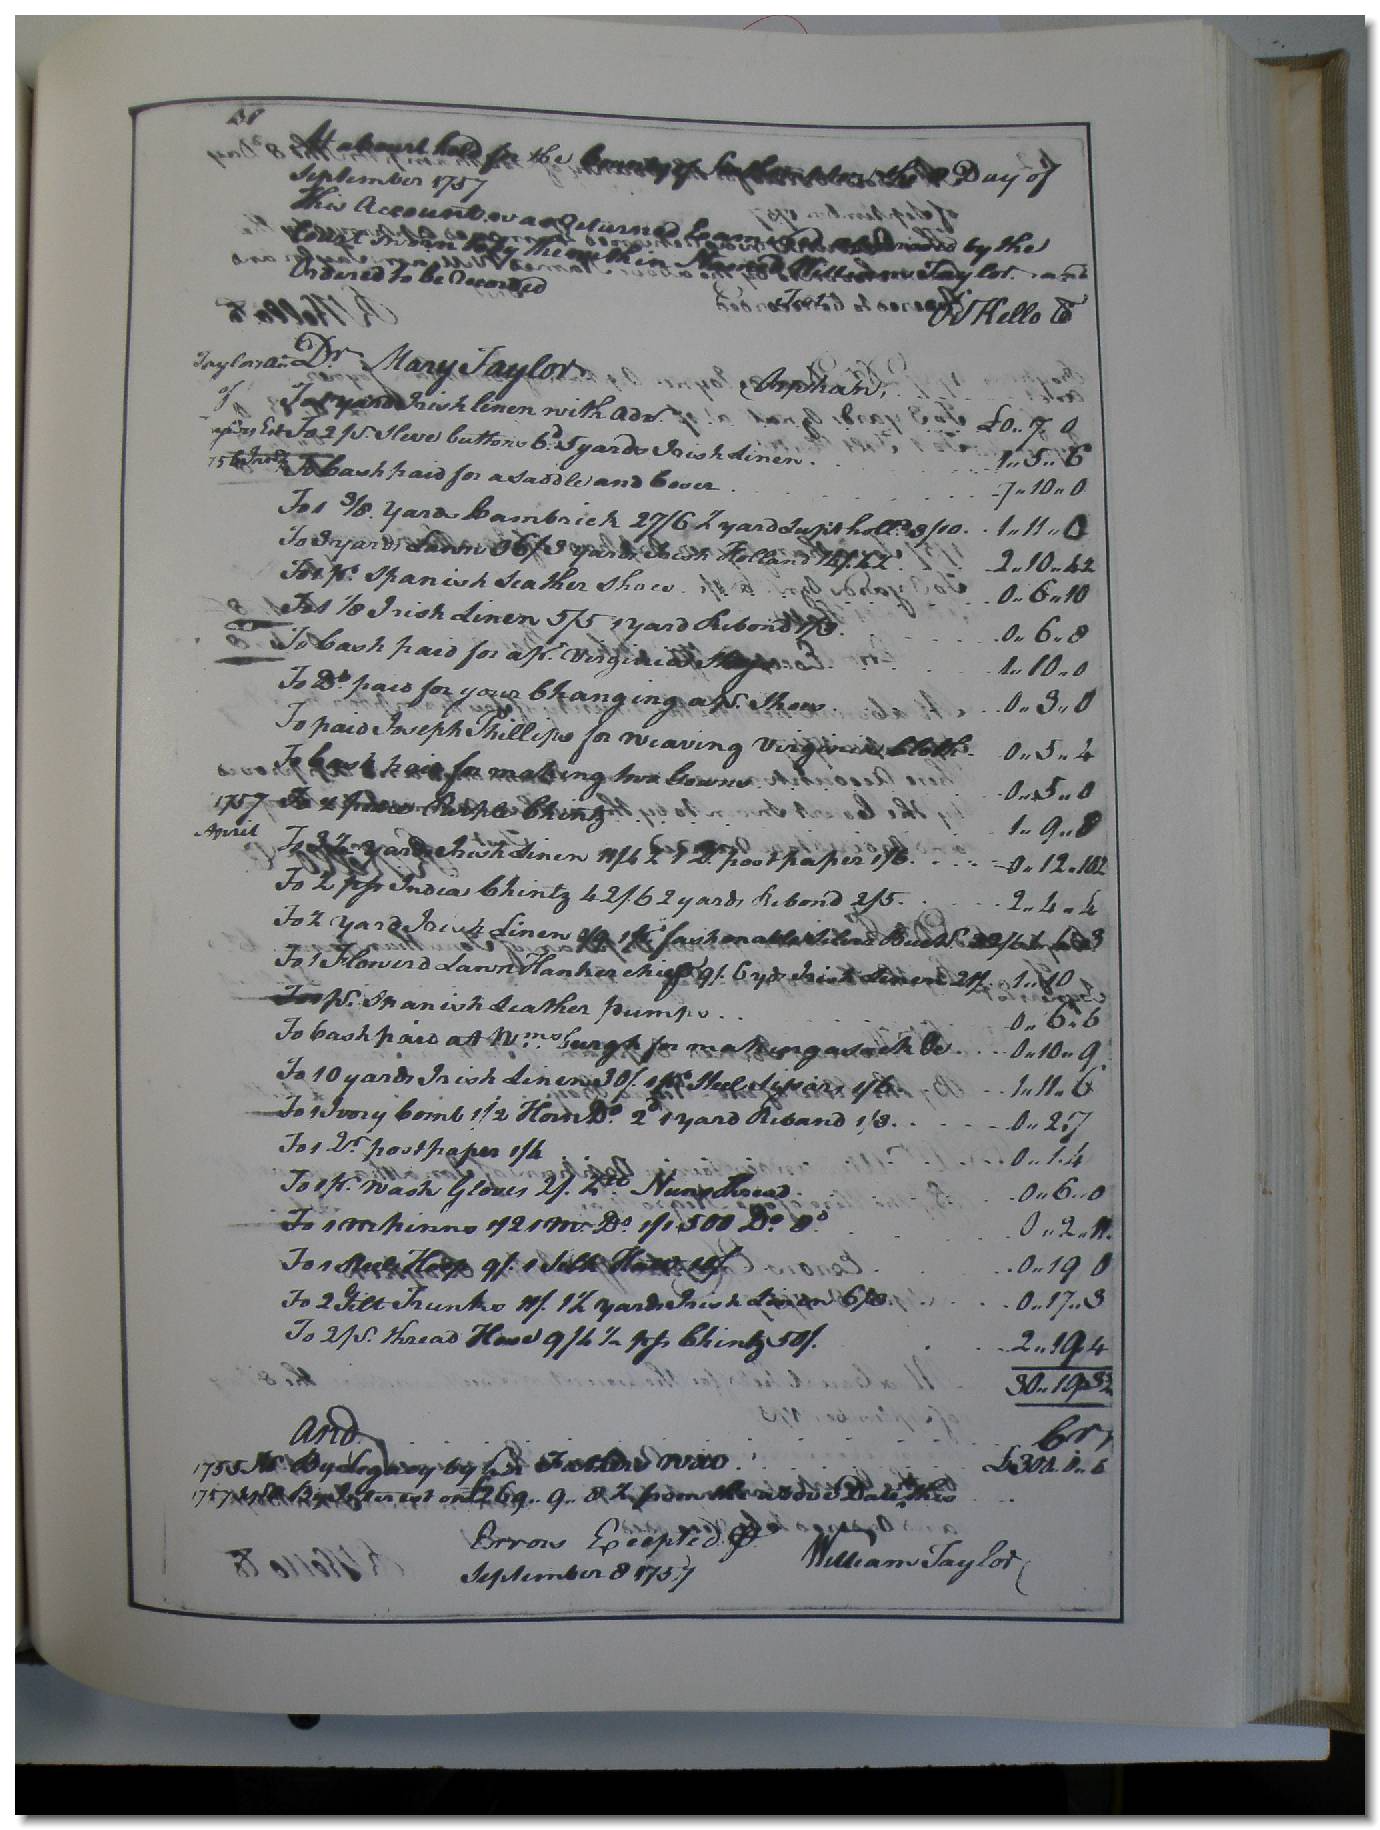 At a Court held for the County of Southampton the 8 Day of
September 1757
This Account was Returned Examined by the
Court Sworn to by the within Named William Taylor and
Ordered to be Recorded
Test
R Kello
Taylor Dr. Mary Taylor Orphan,
of To 1 yard Irish linen with £0..7.0
To 2 ps. Sleve buttons 6d. 5 yards Irish Linen 1..5..6
To Cash paid for a Saddle and Cover 7..10..0
To 1 3/8 yard Cambrick 27/6 ½ yard 3/10 1..11..
To 3 yards Lawn 36/ 3 yards Irish Holland 2..10..4½
To 1 pr. Spanish Leather Shoes 0..6..10
To 1 1/8 Irish Linen 5/5 1 yard Ribond 1/3 0..6..8
To Cash paid for a pr. Virginia 1..10..0
To Do. paid for your Changing a pr. Shoes 0..3..0
To paid Joseph Phillips for weaving Virginia Cloth 0..5..4
To Cash paid for making two Gowns 0..5..0
1757 To piece Purple Chintz 1..9..8
April To yards Irish Linen 11/4½ 1 Q. post paper 1/6 0..12..10½
To ½ ps India Chintz 42/6 2 yards Ribond 2/5 2..4..4
To ½ yard Irish Linen fashonable Silver Buck
To 1 Flowerd Lawn Hankerchief 9/. 6 yds Irish Linen 21/. 1..10
To 1 pr. Spanish Leather pumps 0..6..6
To Cash paid at Wmsburgh for making a sack &c. 0..10..9
To 10 yards Irish Linen 30/. 1 pr. Steel Sissars 1/6 1..11..6
To 1 Ivory Comb 1/2 Horn Do. 2d 1 yard Riband 1/3 0..2.7
To 1 Qr. post paper 1/4 0..1.4
To 1 pr. Wash Gloves 2/. Nuns thread 0..6..0
To 1 M pinns 1/2 1 M. Do. 1/1 500 Do. 8d 0..2..11
To 1 Steel Hoop 9/. 1 Silk 0..19 0
To 2 Gilt Trunks 11/. 1½ yards Irish Linen 6/3 0..17..3
To 2 ps. thread Hose 9/4 ½ ps Chintz 50/. 2..19.4
30..19..3½
And Cr,
1755 By Legacy by her Fathers Will £300
1757 By Interest on £269..9..8½ from the above Date to this
Errors Excepted
September 8 1757 William Taylor